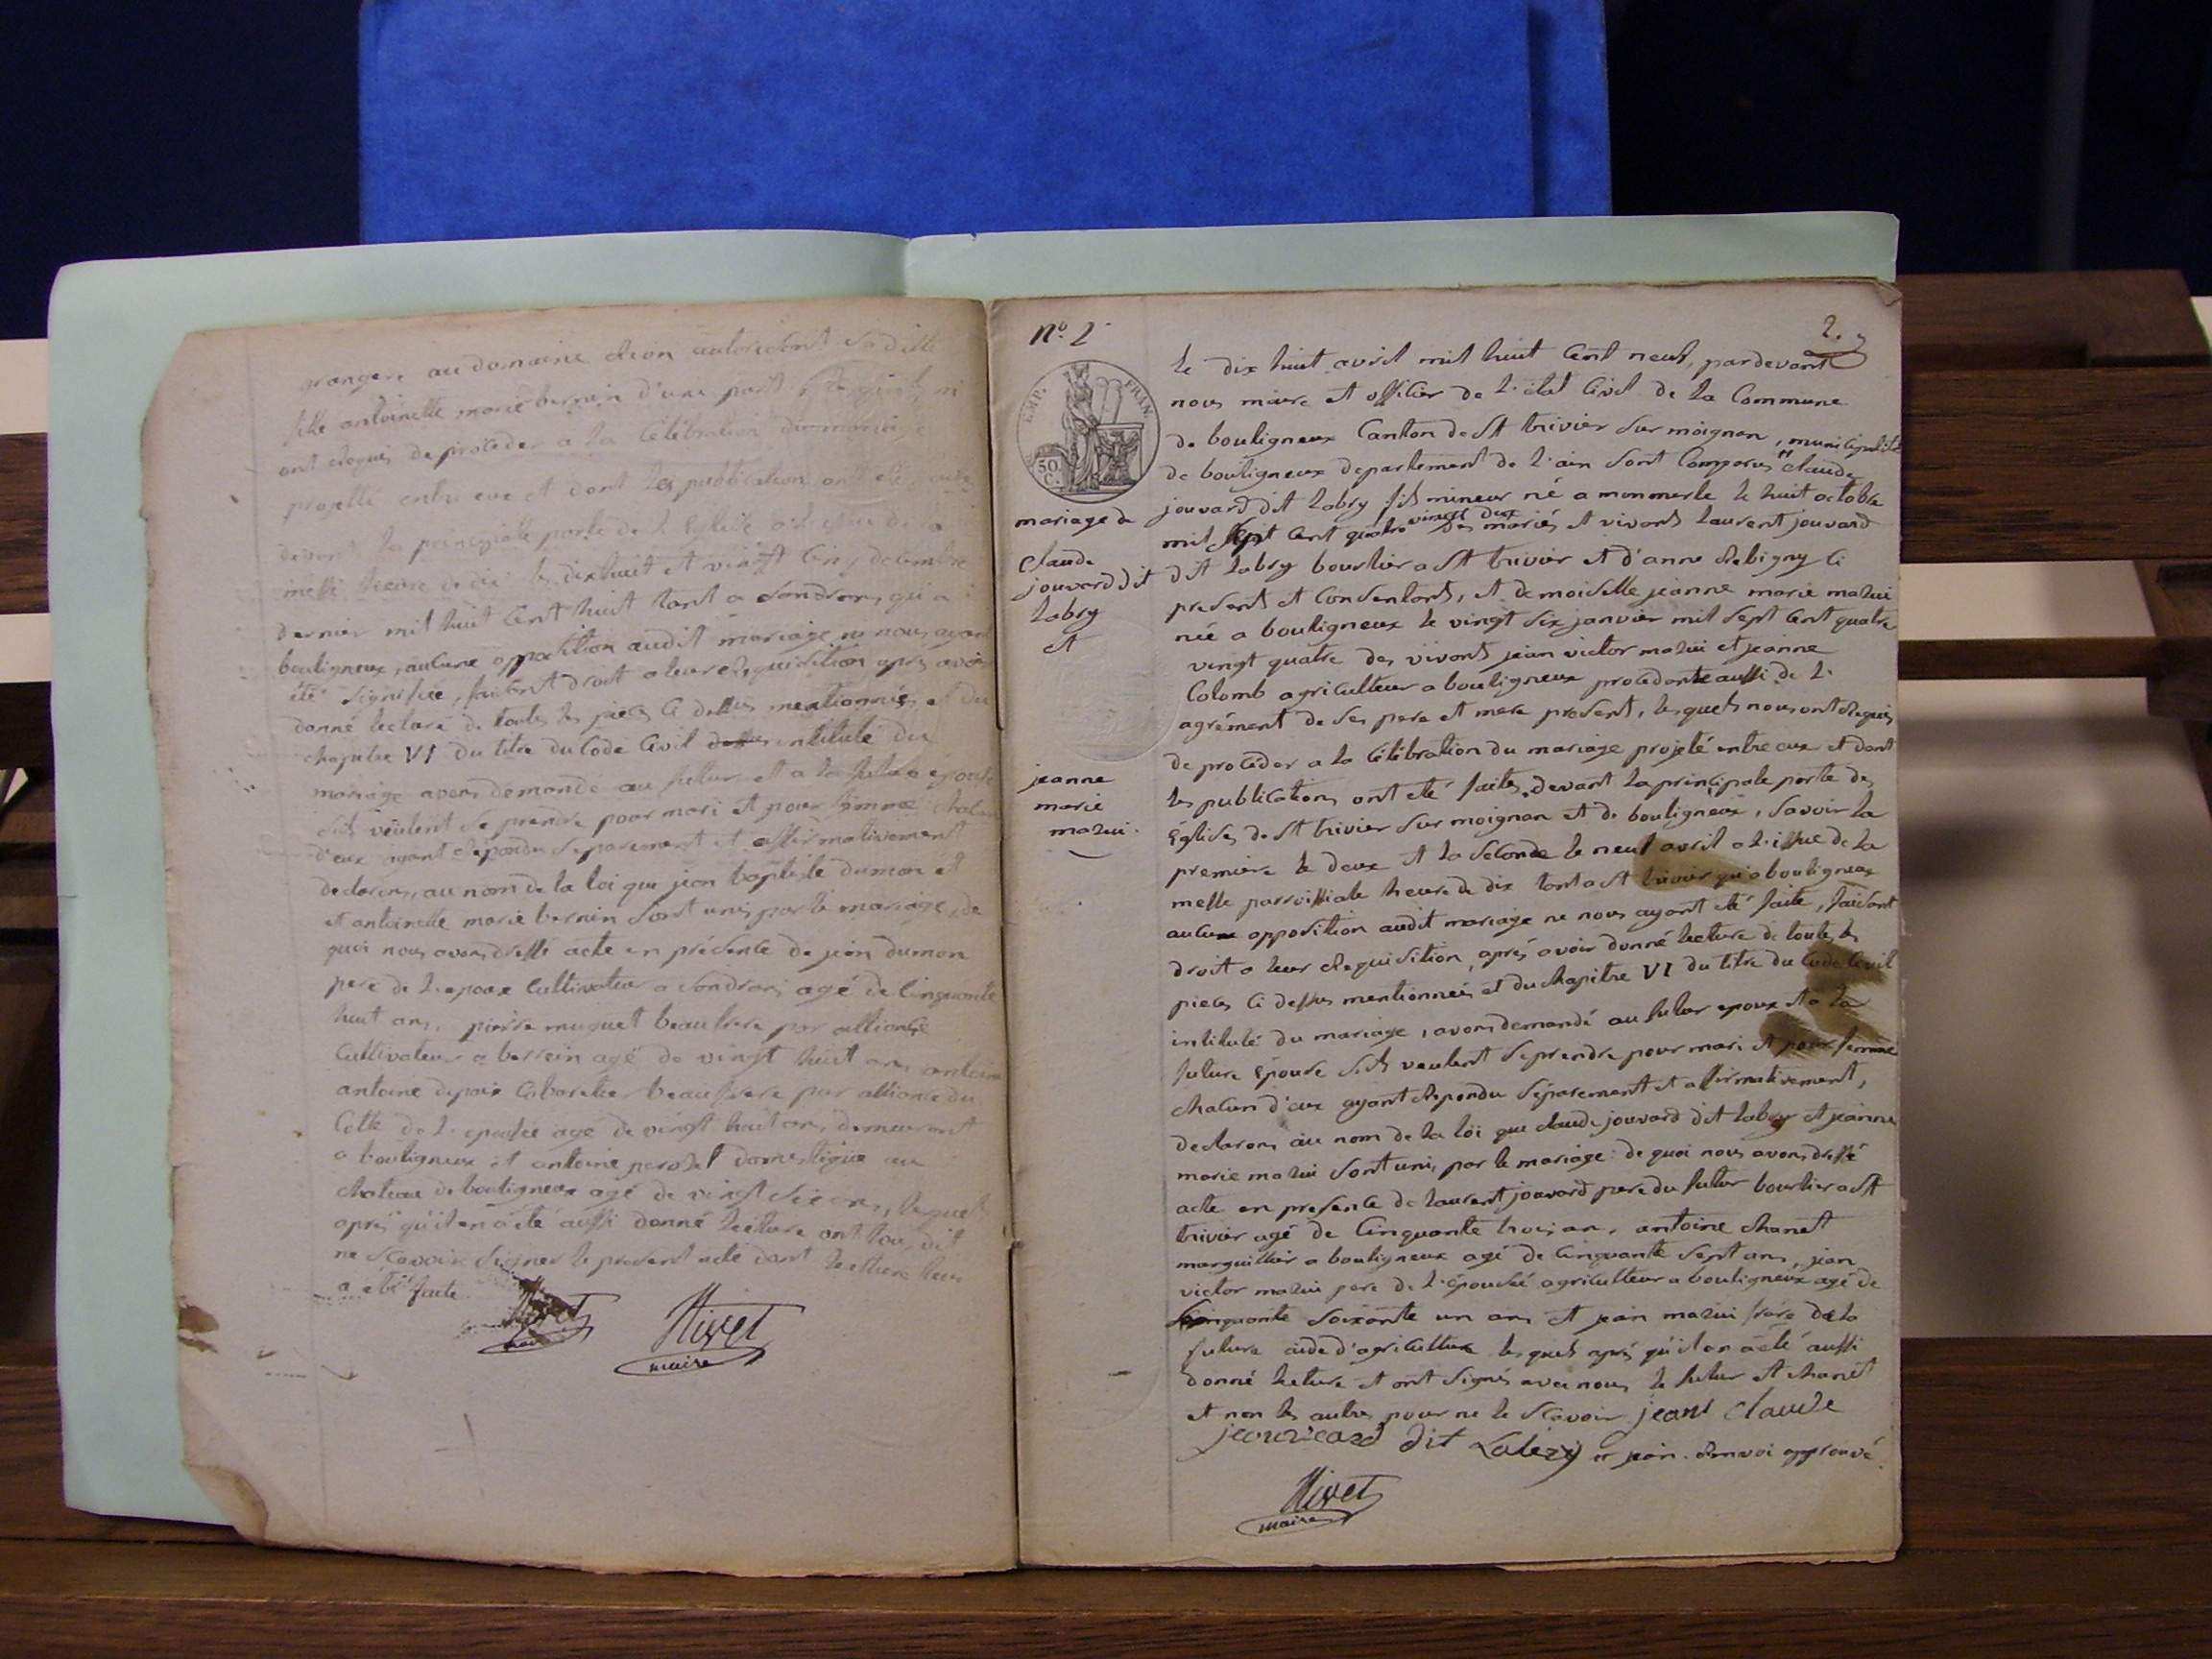 grangere au domaine autorisant sa dite
fille antoinette marie bernin d'une part, lesquels m
ont requis de proceder a la Célébration du mariage
projetté entre eux et dont les publications ont été faites
devant la principale porte de l'Eglise a l'issue de la
messe heure de dix les dix huit et vingt Cinq decembre
dernier mil huit Cent huit tant a Sandrans qu'a
bouligneux, aucune opposition audit mariage ne nous ayant
été signifiée, faisant droit a leur requisition, après avoir
donné lecture de toutes les pieces Ci dessus mentionnées et du
chapitre VI du titre du Code Civil intitulé du
mariage avons demandé au futur et a la future épouse
s'ils veulent se prendre pour mari et pour femme chacun
d'eux ayant répondu séparement et affirmativement
declarons, au nom de la loi que jean baptiste dumon et
et antoinette marie bernin sont unis par le mariage, de
quoi nous avons dressé acte en présence de jean dumon
pere de l'epoux Cultivateur a Sandrans agé de Cinquante
huit ans, pierre muguet beaufrere par alliance
Cultivateur a agé de vingt huit ans antoine
antoine depaix Cabaretier beaufrere par alliance du
Cotté de l'epousée agé de vingt huit ans, demeurant
a bouligneux et antoine domestique au
chateau de bouligneux agé de vingt six ans, lesquels
après qu'il en a été aussi donné lecture ont tous dit
ne Scavoir Signer le present acte dont lecture leur
a été faite
Nivet
maire
Nivet
maire
N.º 2
2.
EMP. FRAN.
50
C.
mariage de
Claude
jouvard dit
labry
et
jeanne
marie
mazui.
le dix huit avril mil huit Cent neuf, pardevant
nous maire et officier de l'état Civil de la Commune
de bouligneux Canton de St trivier Sur moignan, municipalité
de bouligneux departement de l'ain Sont Comparus claude
jouvard dit labry fils mineur né a monmerle le huit octobre
mil Sept Cent quatre vingt dix des mariés et vivants laurent jouvard
dit labry bourlier a St trivier et d'anne Ci
presents et Consentants, et demoiselle jeanne marie mazui
née a bouligneux le vingt Six janvier mil Sept Cent quatre
vingt quatre des vivants jean victor mazui et jeanne
Colomb agriculteur a bouligneux procedante aussi de l'
agrément de Ses pere et mere present, lesquels nous ont requis
de procéder a la Célébration du mariage projeté entre eux et dont
les publications ont été faites, devant la principale porte des
Eglises de St trivier Sur moignan et de bouligneux, Savoir la
premiere le deux et la Seconde le neuf avril a l'issue de la
messe parroissiale heure de dix tant a St trivier qu'a bouligneux
aucune opposition audit mariage ne nous ayant été faite, faisant
droit a leur requisition, après avoir donné lecture de toutes les
pieces Ci dessus mentionnées et du chapitre VI du titre du Code Civil
intitulé du mariage, avons demandé au futur epoux et a la
future Epouse S'ils veulent Se prendre pour mari et pour femme
chacun d'eux ayant répondu Séparement et affirmativement,
declarons au nom de la loi que claude jouvard dit labry et jeanne
marie mazui Sont unis par le mariage: de quoi nous avons dressé
acte en presence de laurent jouvard pere du futur bourlier a St
trivier agé de Cinquante trois ans, antoine chanet
marguillier a bouligneux agé de Cinquante Sept ans, jean
victor mazui pere de l'épousée agriculteur a bouligneux agé de
Soixante un ans et jean mazui frère de la
future aide d'agriculture lesquels après qu'il en a été aussi
donné lecture et ont Signés avec nous le futur et chanet
et non les autres pour ne le Scavoir jeant claude
jouvard dit Labry et jean. renvoi approuvé.
Nivet
maire